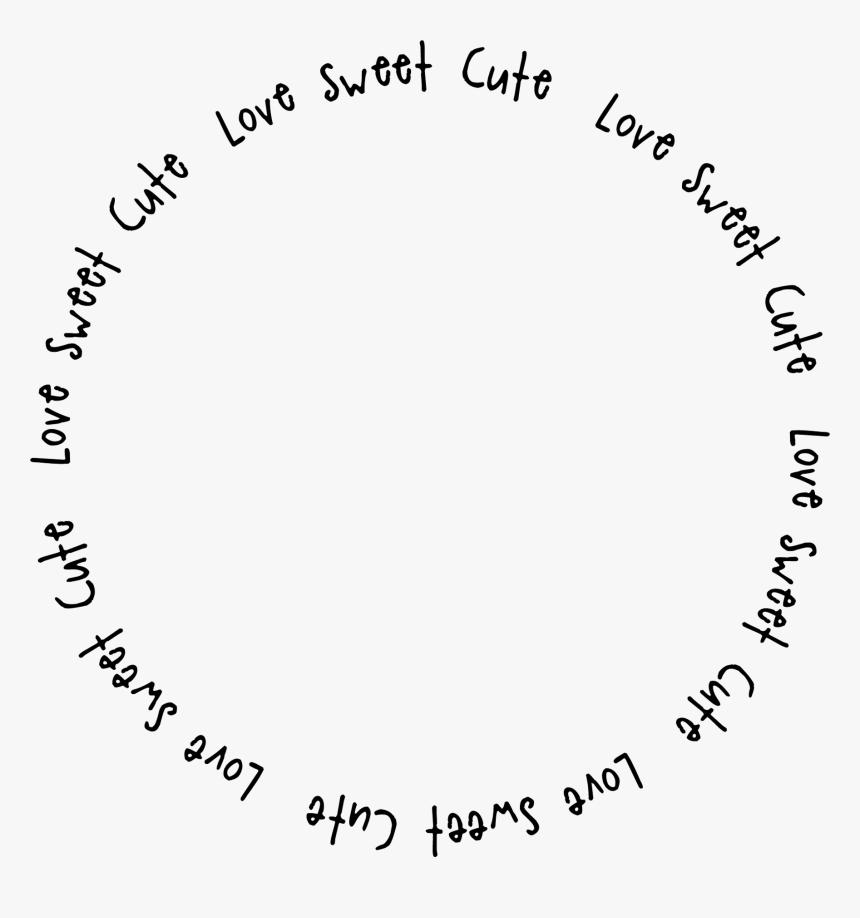 Love Sweet Cute Love Sweet Cute Love Sweet Cute Love Sweet Cute Love Sweet Cute Love Sweet Cute